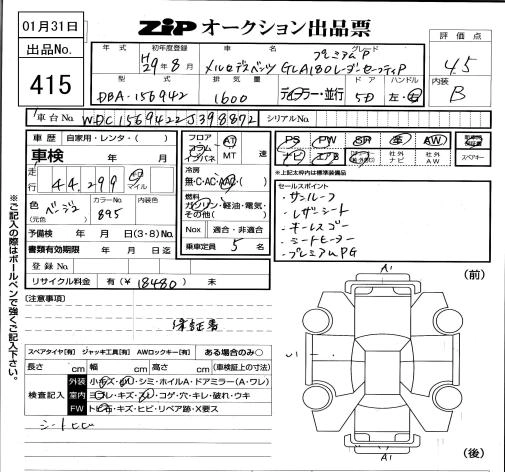 01月31日
ZiP オークション出品票
出品No.
415
年式 初年度登録 車名 グレード
H29年8月 メルセデスベンツ GLA180レーダーセーフティP プレミアムP
評価点
4.5
型式 排気量 ドア ハンドル
DBA-156942 1600 ディーラー・並行 5D 左・右
内装
B
車台No. WDC1569422J398872 シリアルNo.
車歴 自家用・レンタ・( )
車検 年 月
走行 44,299 km マイル
色 (元色) ベージュ カラーNo. 895 内装色
予備検 年 月 日(3・8)No.
書類有効期限 年 月 日迄
登録No.
リサイクル料金 有(¥ 18480 ) 無
フロア コラム インパネ AT MT 速
冷房
無・C・AC・AAC・( )
燃料
ガソリン・軽油・電気・その他( )
Nox 適合・非適合
乗車定員 5 名
PS PW SR 革 AW
ナビ エアB 社外ナビ 社外AW
スペアキー
★上記太枠内は標準装備品
セールスポイント
・サンルーフ
・レザーシート
・キーレスゴー
・シートヒーター
・プレミアムPG
(注意事項)
保証書
スペアタイヤ[有] ジャッキ工具[有] AWロックキー[有] ある場合のみ○
長さ cm 幅 cm 高さ cm (車検証上の寸法)
検査記入
外装 小キズ・凹・シミ・ホイルA・ドアミラー(A・ワレ)
室内 ヨゴレ・キズ・スレ・コゲ・穴・キレ・破れ・ウキ
FW トビ石・キズ・ヒビ・リペア跡・X要ス
シートヒビ
※ご記入の際はボールペンで強くご記入下さい。
A1
(前)
U1
A1
(後)